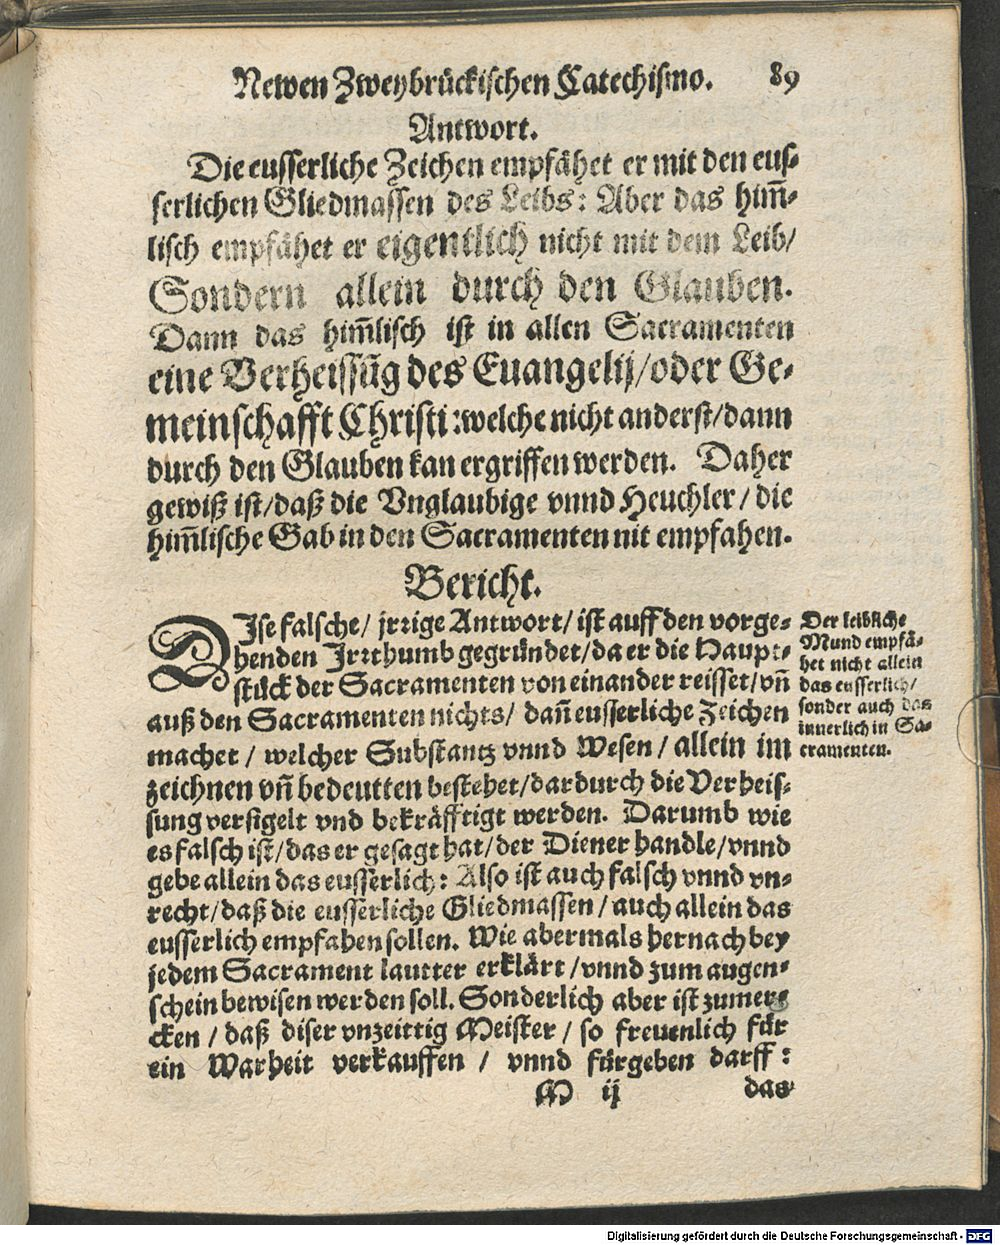 Newen Zweybrückischen Catechismo. 89
Antwort.
Die eusserliche Zeichen empfähet er mit den eus-
serlichen Gliedmassen des Leibs: Aber das him̄-
lisch empfähet er eigentlich nicht mit dem Leib/
Sondern allein durch den Glauben.
Dann das him̄lisch ist in allen Sacramenten
eine Verheissūg des Euangelij/oder Ge-
meinschafft Christi: welche nicht anderst/dann
durch den Glauben kan ergriffen werden. Daher
gewiß ist/daß die Vnglaubige vnnd Heuchler/ die
him̄lische Gab in den Sacramenten nit empfahen.
Bericht.
DJse falsche/ jrrige Antwort/ ist auff den vorge-
henden Jrrthumb gegründet/da er die Haupt-
stück der Sacramenten von einander reisset/vn̄
auß den Sacramenten nichts/ dan̄ eusserliche Zeichen
machet/ welcher Substantz vnnd Wesen/ allein im
zeichnen vn̄ bedeutten bestehet/dardurch die Verheis-
sung versigelt vnd bekräfftigt werden. Darumb wie
es falsch ist/das er gesagt hat/der Diener handle/vnnd
gebe allein das eusserlich: Also ist auch falsch vnnd vn-
recht/daß die eusserliche Gliedmassen/auch allein das
eusserlich empfahen sollen. Wie abermals hernach bey
jedem Sacrament lautter erklärt/vnnd zum augen-
schein bewisen werden soll. Sonderlich aber ist zumer-
cken/ daß diser vnzeittig Meister/ so freuenlich für
ein Warheit verkauffen/ vnnd fürgeben darff:
M ij das
Der leibliche
Mund empfä-
het nicht allein
das eusserlich/
sonder auch das
innerlich in Sa-
cramenten.
Digitalisierung gefördert durch die Deutsche Forschungsgemeinschaft - DFG